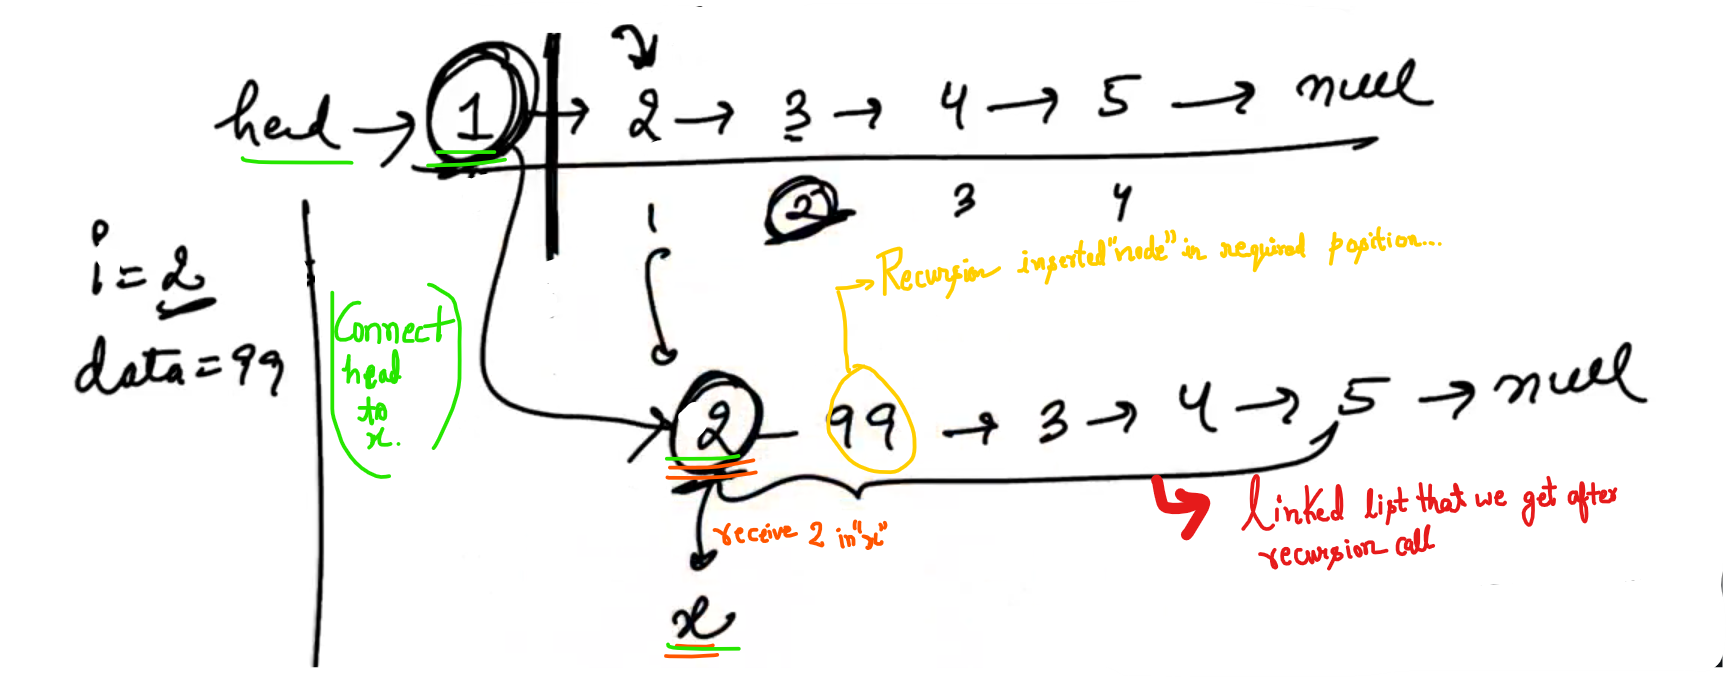 head → 1 → 2 → 3 → 4 → 5 → null
1 2 3 4
i = 2
data = 99
Connect
head
to
x.
Recursion inserted "node" in required position...
2 — 99 → 3 → 4 → 5 → null
receive 2 in "x"
linked list that we get after
recursion call
x